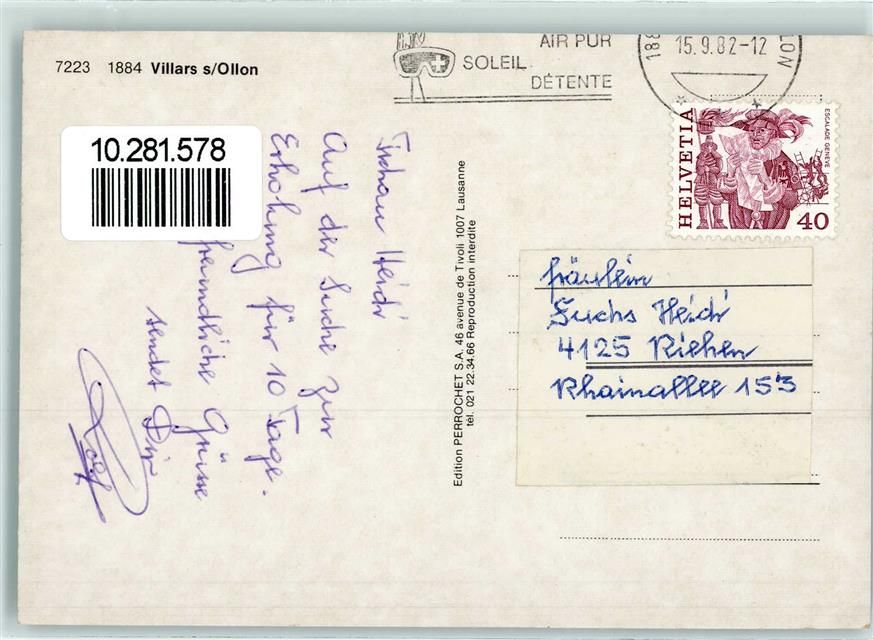 7223 1884 Villars s/Ollon
AIR PUR
SOLEIL
DÉTENTE
188
15.9.82-12
LON
HELVETIA
ESCALADE GENÈVE
40
10.281.578
Heidi
Auf der Suche zur
Erholung für 10 Tage.
freundliche Grüsse
sendet Dir
Rolf
Edition PERROCHET S.A. 46 avenue de Tivoli 1007 Lausanne
tél. 021 22.34.66 Reproduction interdite
Fräulein
Fuchs Heidi
4125 Riehen
Rhainallee 153